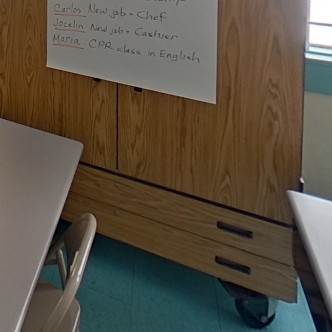 Carlos New job - Chef
Jocelin New job - Cashier
Maria CPR class in English